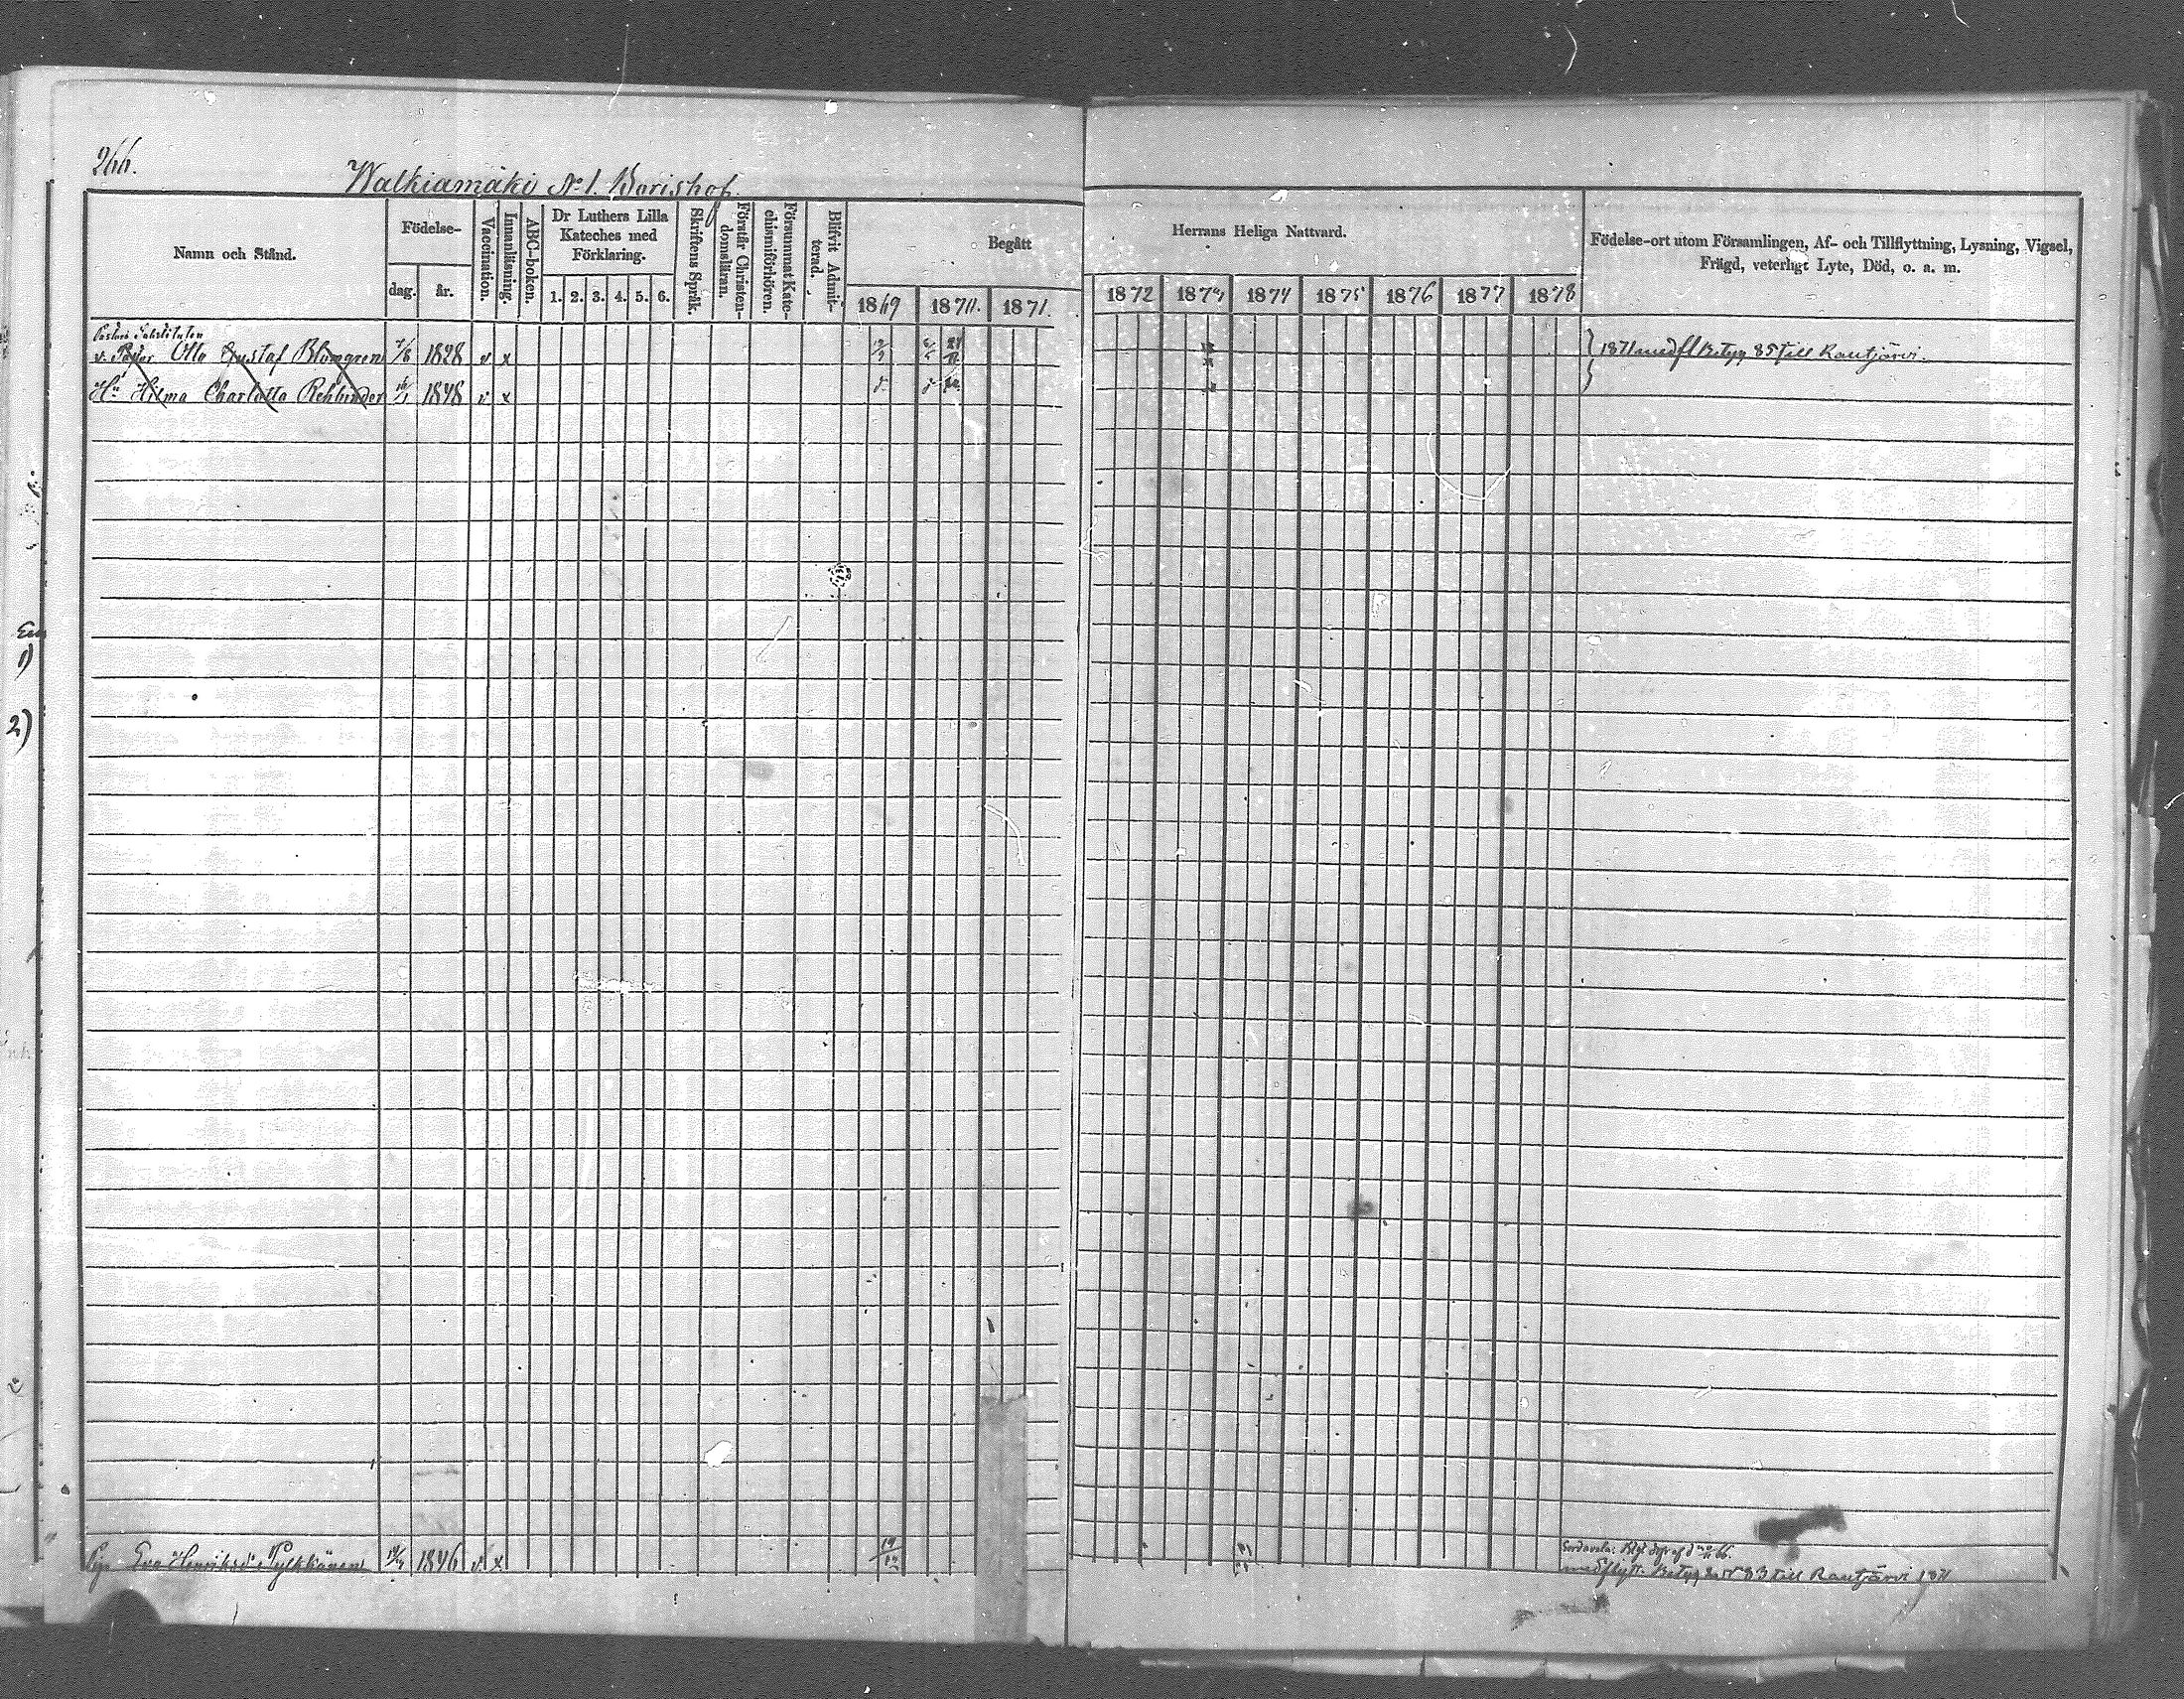 266.
Walkiamäki No 1. Borishof.
Namn och Stånd.
Födelse-
dag.
år.
Vaccination.
Innanläsning.
ABC-boken.
Dr Luthers Lilla Kateches med Förklaring.
1. 2. 3. 4. 5. 6.
Skriftens Språk.
Förstår Christen-domsläran.
Försummat Kate-chismiförhören.
Blifvit Admit-terad.
Begått
Herrans Heliga Nattvard.
1869 1870. 1871. 1872 1873 1874 1875 1876 1877 1878
Födelse-ort utom Församlingen, Af- och Tillflyttning, Lysning, Vigsel,
Frägd, veterligt Lyte, Död, o. a. m.
Pastors Substituten
v. Pastor Otto Gustaf Blomgren 7/8 1828 v x 1871 med fl Betyg 85 till Rautjärvi.
Hu Hilma Charlotta Rehbinder 1848 v x
Pig. Eva Henriksd:r Pylkkänen 1846 v x
Sordavala:
medflytt. Betyg 83 till Rautjärvi 1871
1)
2)